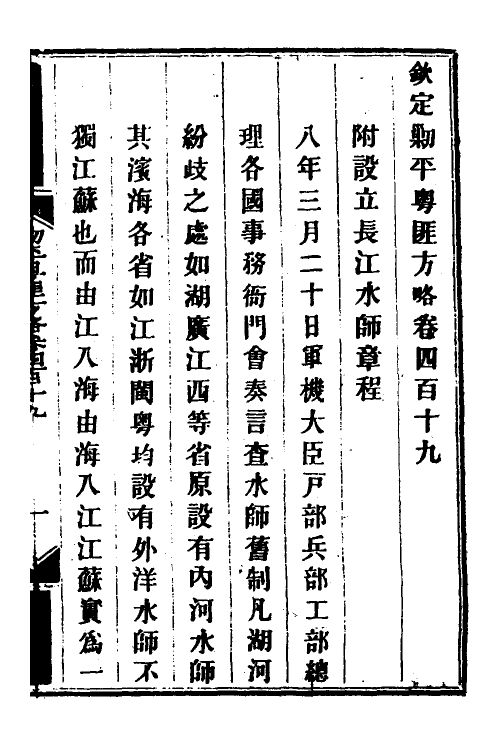 欽定勦平粵匪方略卷四百十九
附設立長江水師章程
八年三月二十日軍機大臣戸部兵部工部總
理各國事務衙門會奏言查水師舊制凡湖河
紛歧之處如湖廣江西等省原設有內河水師
其濱海各省如江浙閩粵均設有外洋水師不
獨江蘇也而由江入海由海入江江蘇實爲一